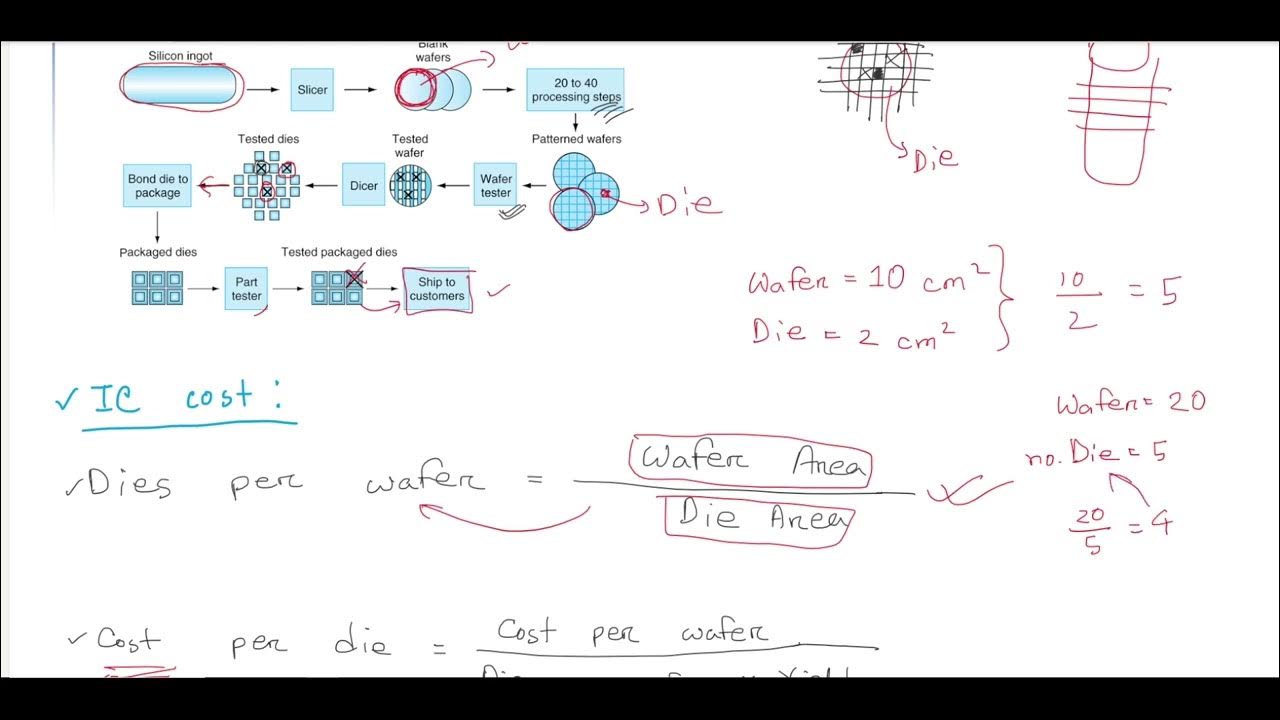 Silicon ingot
Slicer
Blank
wafers
20 to 40
processing steps
Tested dies
Tested
wafer
Patterned wafers
Bond die to
package
Dicer
Wafer
tester
Die
Die
Packaged dies
Tested packaged dies
Part
tester
Ship to
customers
Wafer = 10 cm²
Die = 2 cm²
10
2
= 5
✓ IC cost:
Wafer = 20
no. Die = 5
20
5
= 4
✓ Dies per wafer =
Wafer Area
Die Area
✓ Cost per die =
Cost per wafer